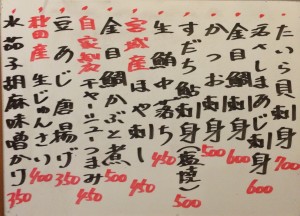 たいら貝刺身 700
活さしまあじ刺身
金目鯛刺身 600
かつお刺身 600
すだち鮎刺身(塩焼) 500
生鮪中落ち 500
宮城産 ほや刺し 450
金目鯛かぶと煮 450
自家製 干キャッシュつまみ 500
豆あじ唐揚げ 450
秋田産 生じゅんさい 350
水茄子胡麻味噌かり 400
350